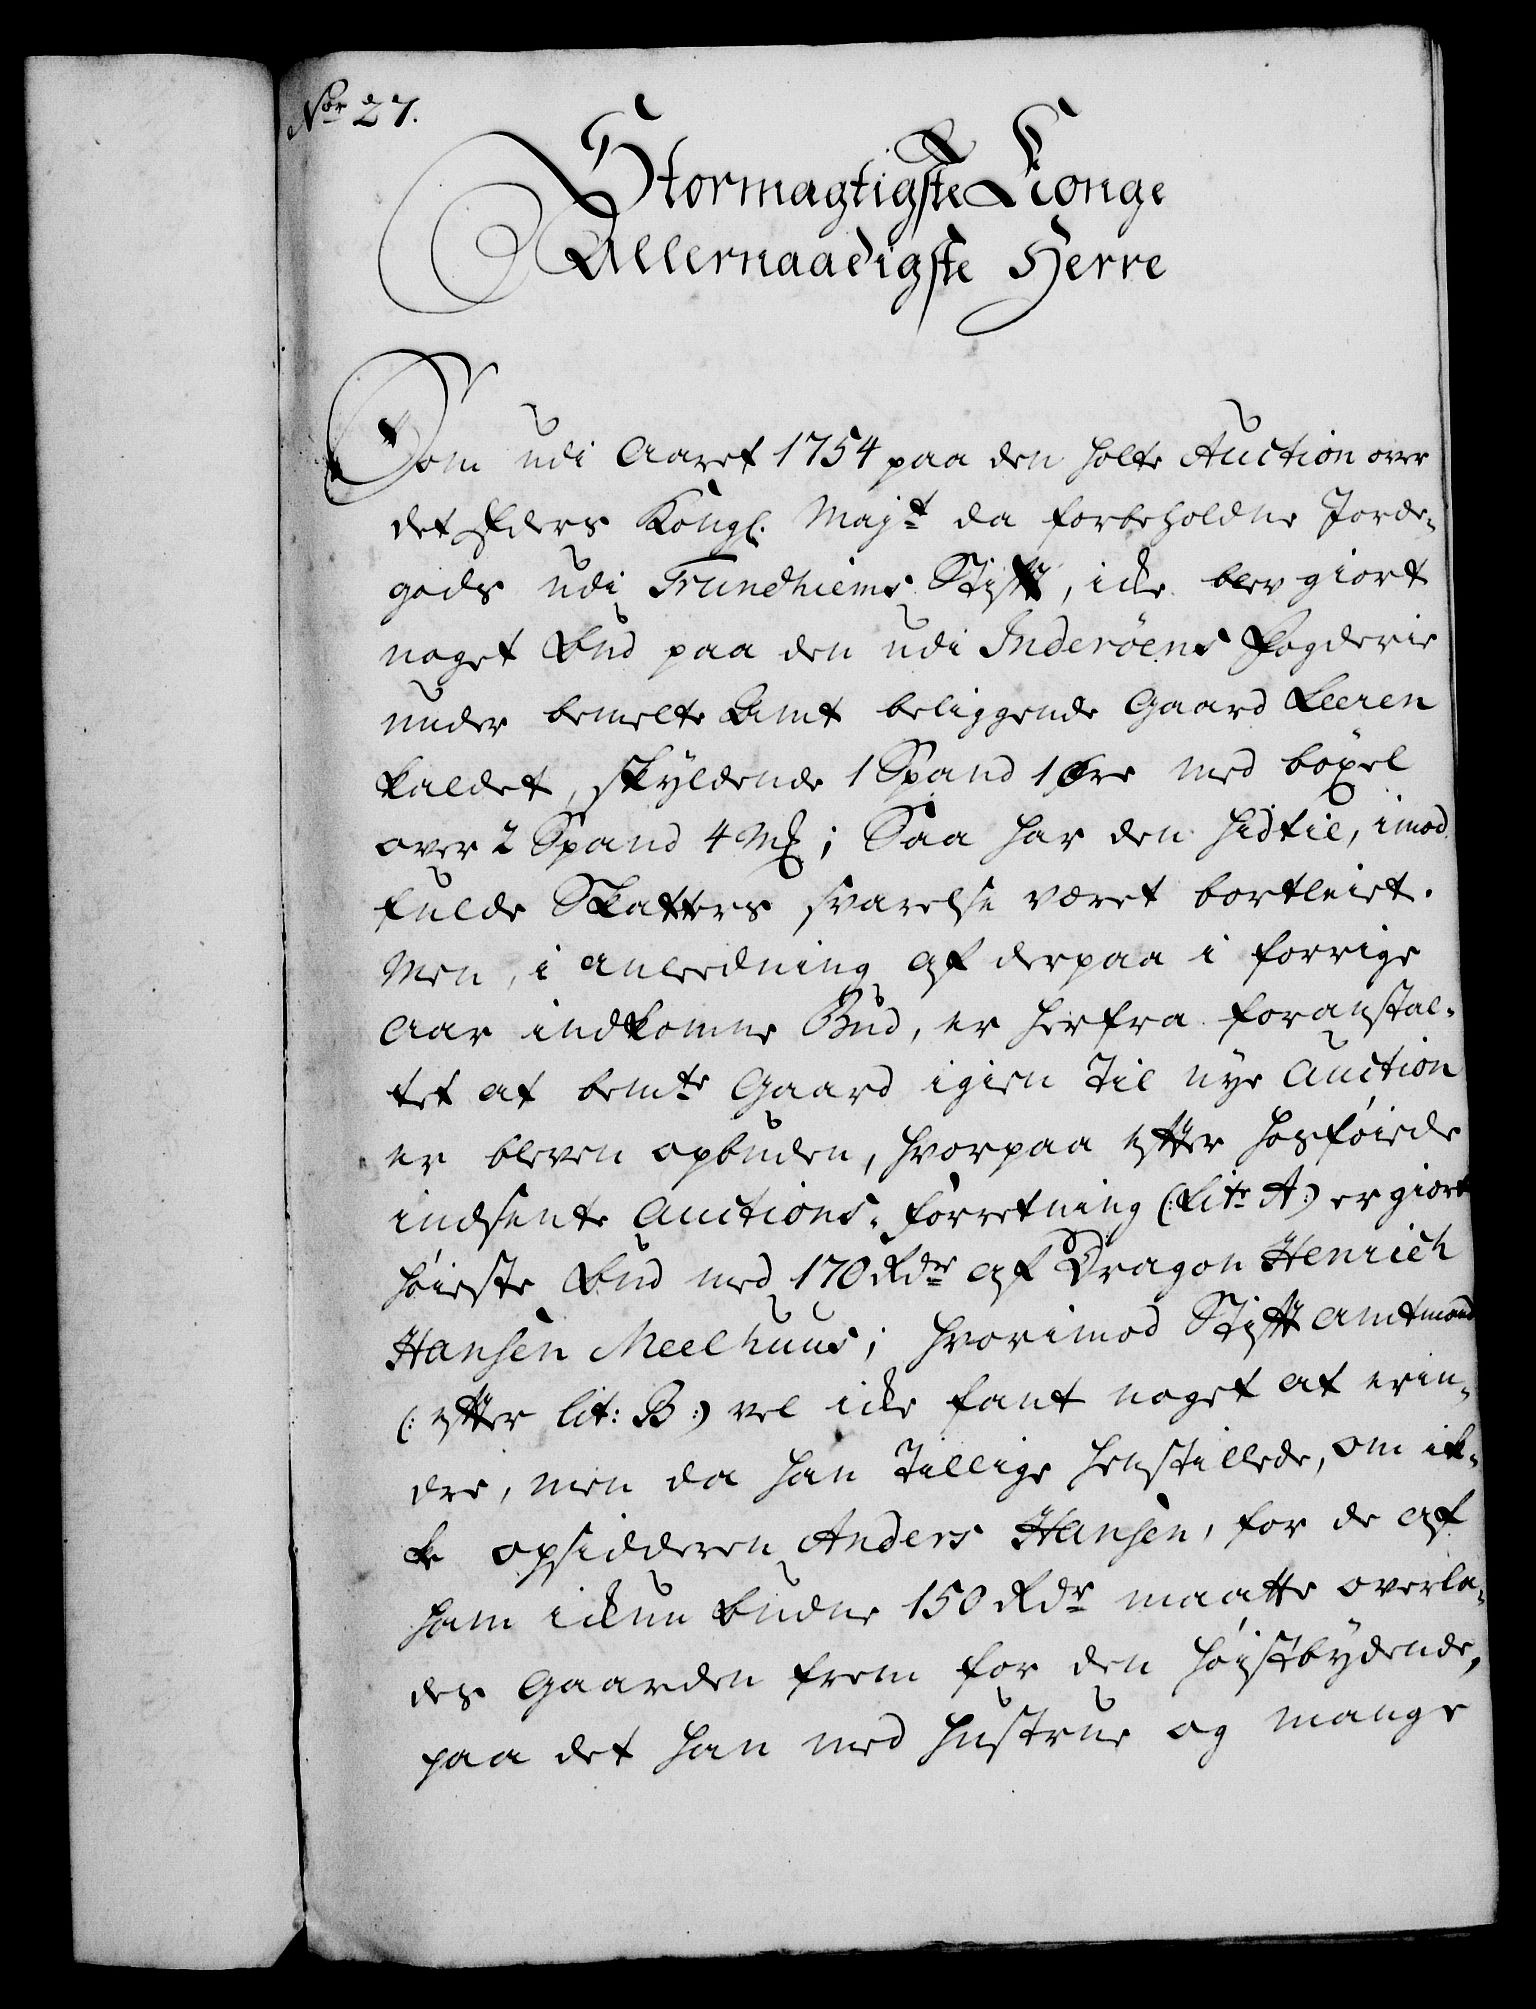 Nor 27.
Stormagtigste Konge
Allernaadigste Herre
Som udi Aaret 1754 paa den holte Auction over
det Eders Kongl. Majt da forbeholdne Jorde-
gods udi Trundhiems Stift, icke blev giort
noget Bud paa den udi Inderöens Fogderie
under bemelte Amt beliggende Gaard Leeren
kaldet, skyldende 1 Spand 1 Øre med böxel
over 2 Spand 4 Mk; Saa har den hidtil, imod
fulde Skatters svarelse været bortleiet.
Men, i anleedning af derpaa i forrige
Aar indkomne Bud, er herfra foranstal-
tet at bemte Gaard igien til nye Auction
er bleven opbuden, hvorpaa efter hosföiede
indsente Auctions-Forretning (: Litr A:) er giort
höieste Bud med 170 Rdr af Dragon Henrich
Hansen Meelhuus; hvorimod Stiftamtmand
(: efter lit: B:) vel icke fant noget at erin-
dre, men da han tillige henstillede, om ik-
ke opsidderen Anders Hansen, for de af
ham ickun budne 150 Rdr maatte overla-
des Gaarden frem for den höistbydende,
paa det han med hustrue og mange